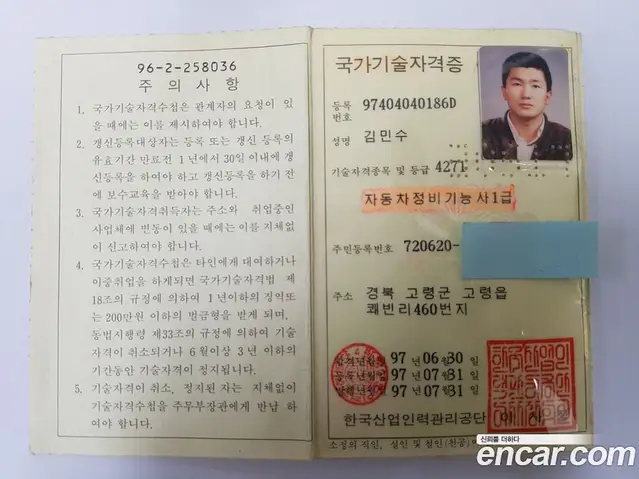 96-2-258036
주 의 사 항
1. 국가기술자격수첩은 관계자의 요청이 있
을 때에는 이를 제시하여야 합니다.
2. 갱신등록대상자는 등록 또는 갱신 등록의
유효기간 만료전 1년에서 30일 이내에 갱
신등록을 하여야 하고 갱신등록을 하기 전
에 보수교육을 받아야 합니다.
3. 국가기술자격취득자는 주소와 취업중인
사업체에 변동이 있을 때에는 이를 지체없
이 신고하여야 합니다.
4. 국가기술자격수첩은 타인에게 대여하거나
이중취업을 하게되면 국가기술자격법 제
18조의 규정에 의하여 1년이하의 징역또
는 200만원 이하의 벌금형을 받게 되며,
동법시행령 제33조의 규정에 의하여 기술
자격이 취소되거나 6월이상 3년 이하의
기간동안 기술자격이 정지됩니다.
5. 기술자격이 취소, 정지된 자는 지체없이
기술자격수첩을 주무부장관에게 반납 하
여야 합니다.
국가기술자격증
등록
번호 97404040186D
성명 김민수
기술자격종목 및 등급 4271
자동차정비기능사1급
주민등록번호 720620-
주소 경북 고령군 고령읍
쾌빈리460번지
합격년월일 97 년 06 월 30 일
등록년월일 97 년 07 월 31 일
발행년월일 97 년 07 월 31 일
한국산업인력관리공단 이 사 장
소정의 직인, 실인 및 철인(천공)이
신뢰를 더하다
encar.com